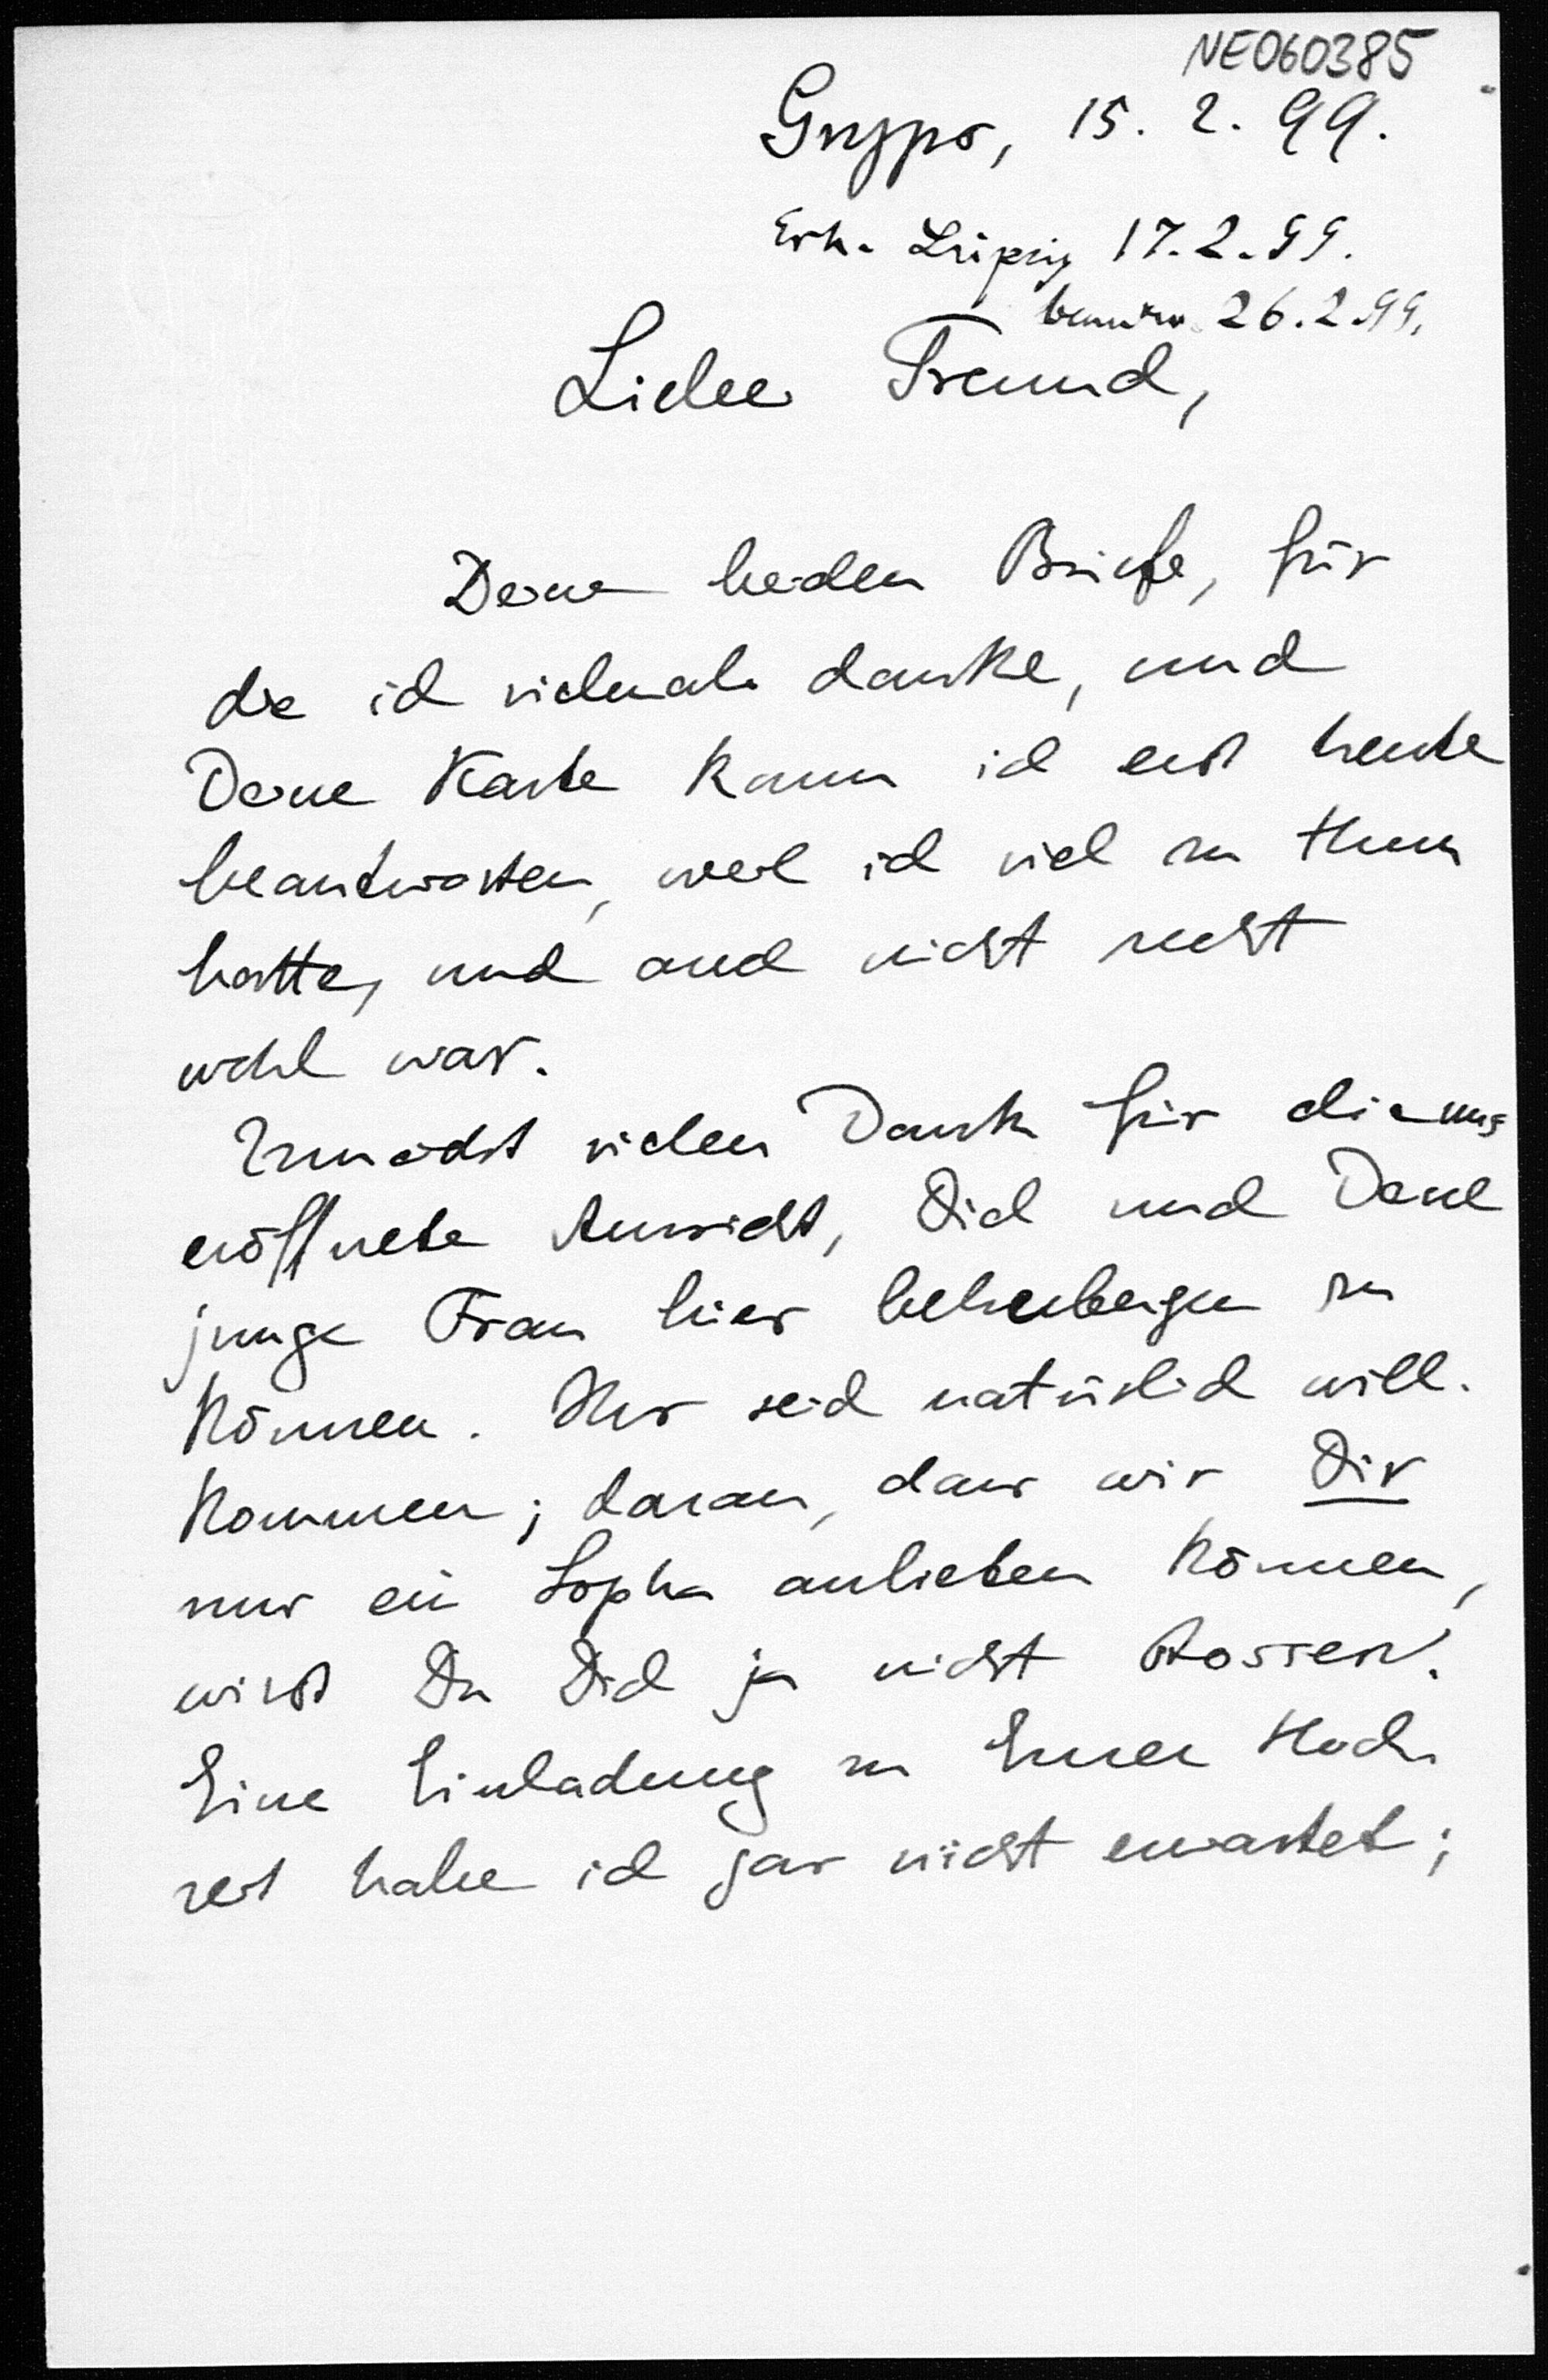 NE060385
Gryps, 15. 2. 99.
Erh. Leipzig 17.2.99.
beantw. 26.2.99.
Lieber Freund,
Deine beiden Briefe, für
die ich vielmals danke, und
Deine Karte kann ich erst heute
beantworten, weil ich viel zu thun
hatte, und auch nicht recht
wohl war.
Zunächst vielen Dank für die uns
eröffnete Aussicht, Dich und Deine
junge Frau hier beherbergen zu
können. Ihr seid natürlich will-
kommen; daran, dass wir Dir
nur ein Sopha anbieten können,
wirst Du Dich ja nicht stossen.
Eine Einladung zu Eurer Hoch-
zeit habe ich gar nicht erwartet;